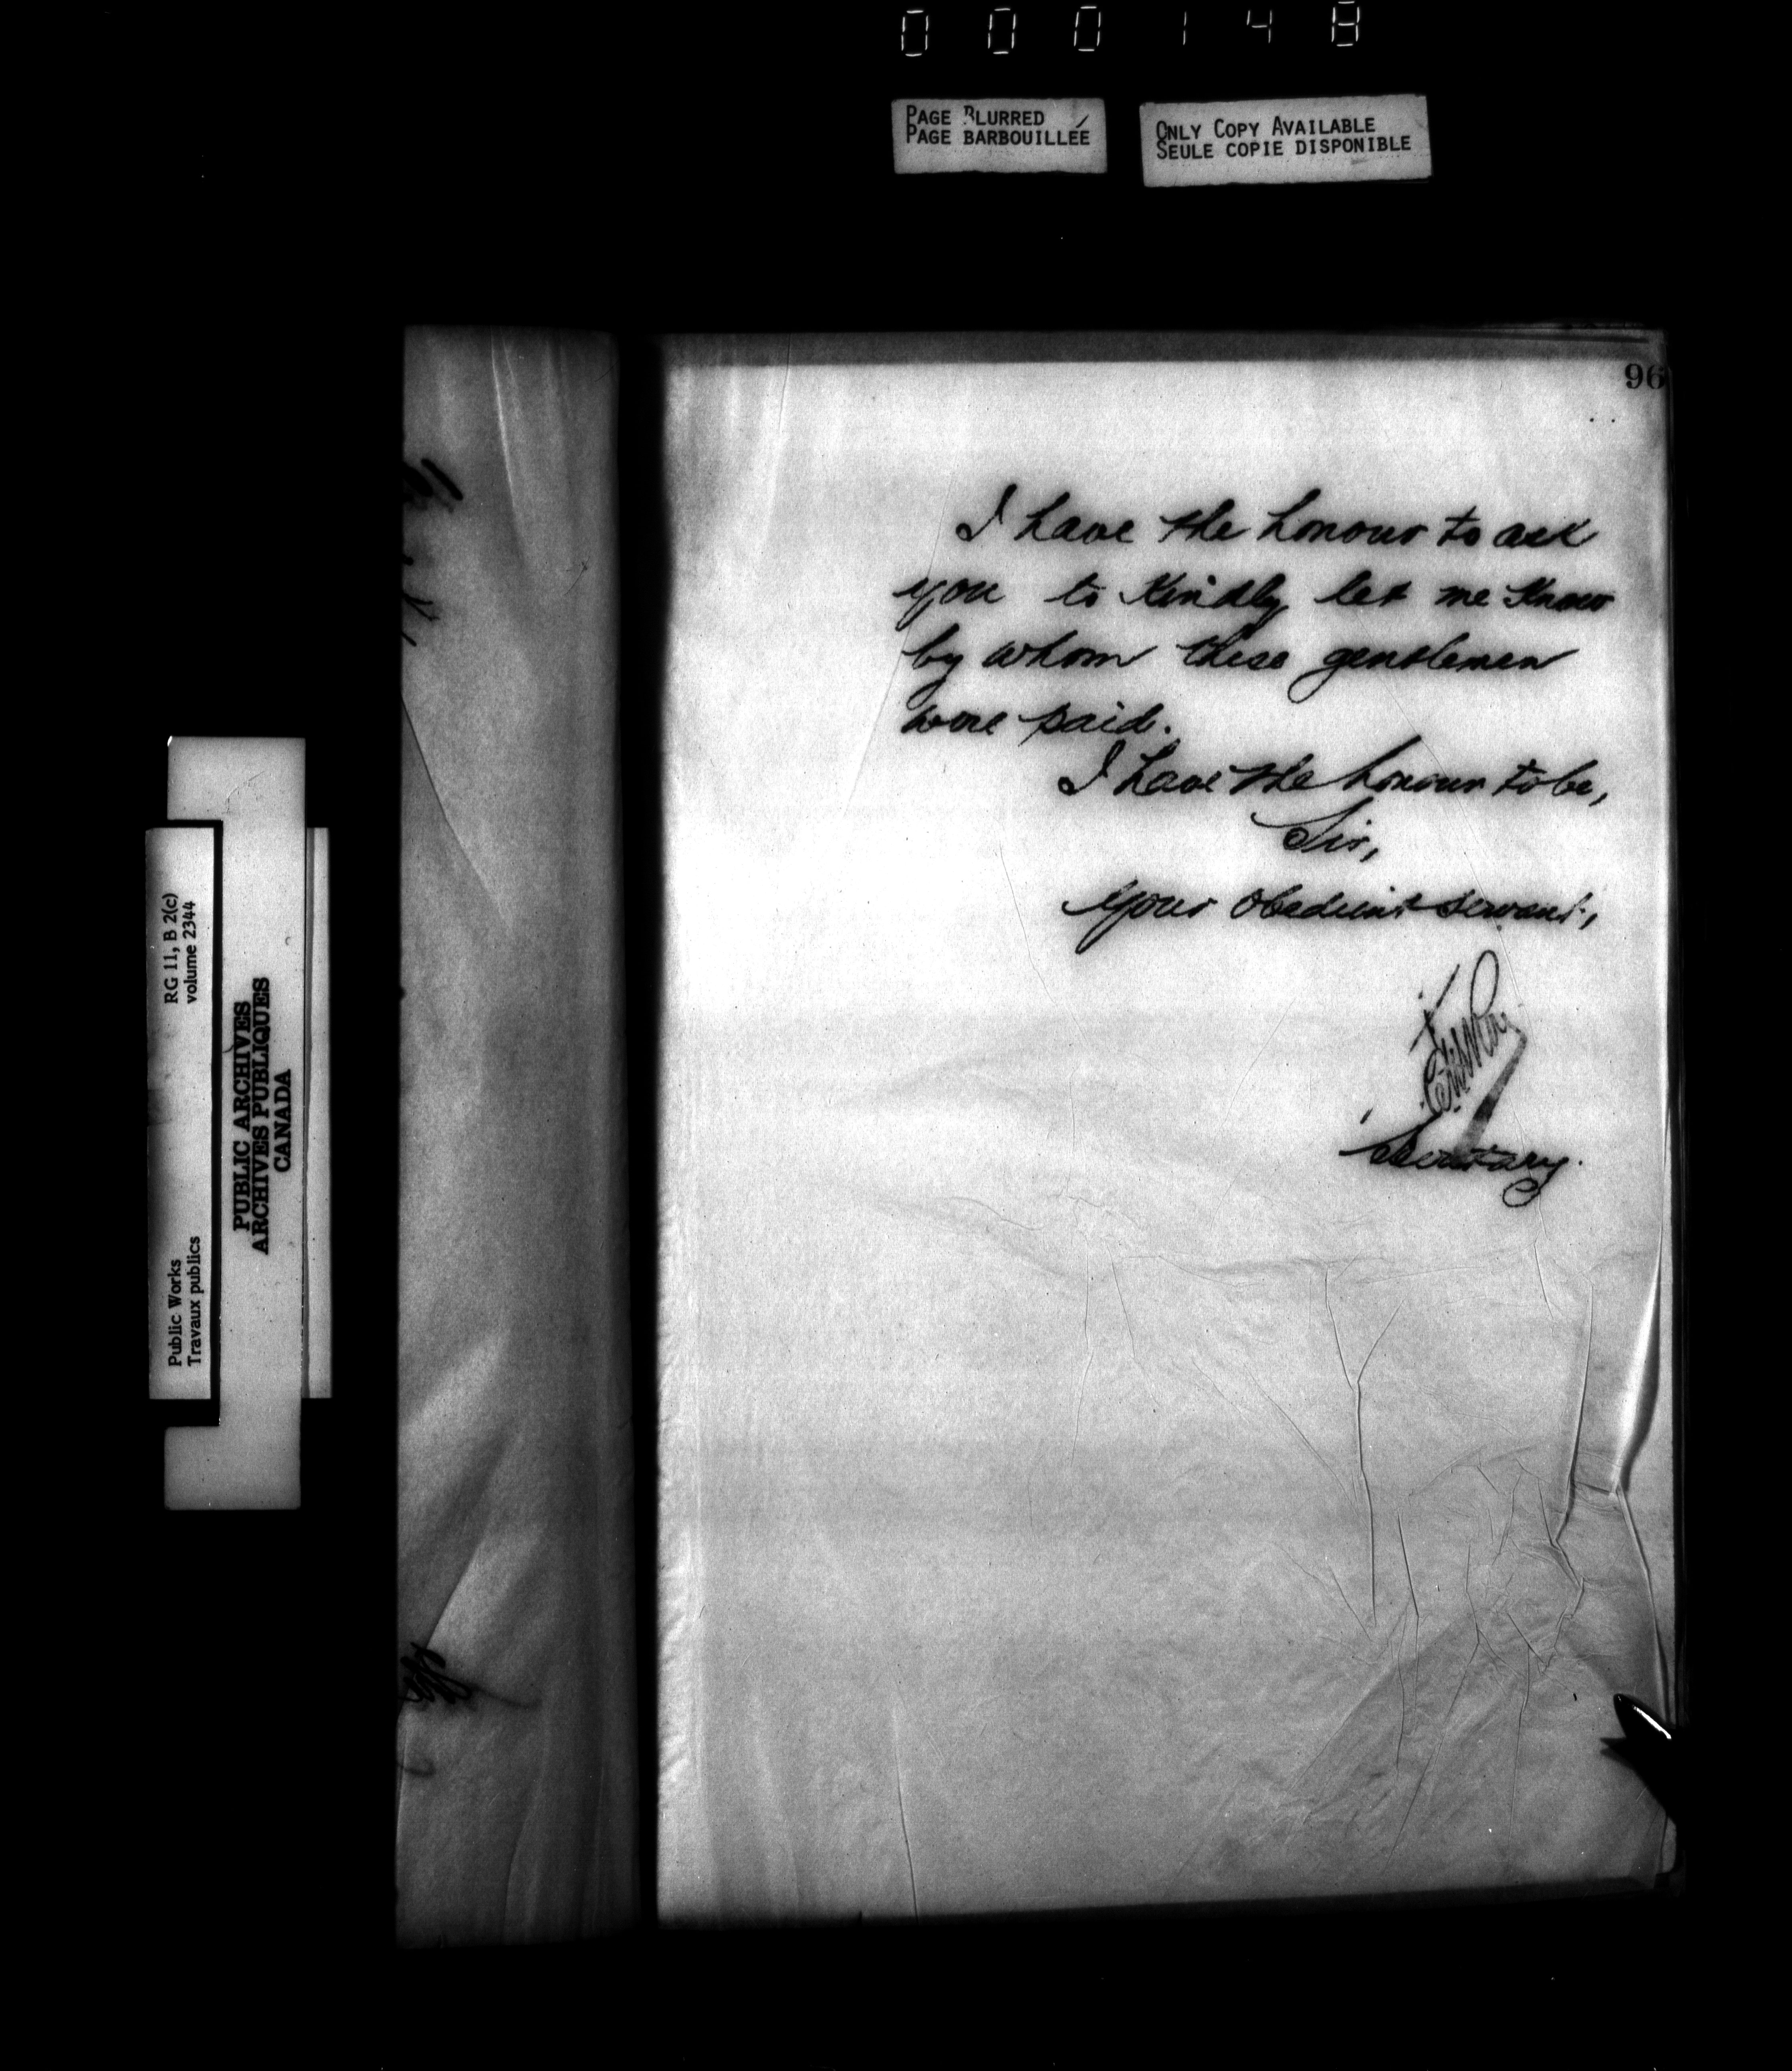 000148
PAGE BLURRED
PAGE BARBOUILLÉE
ONLY COPY AVAILABLE
SEULE COPIE DISPONIBLE
96
I have the honour to ask
you to kindly let me know
by whom these gentlemen
were paid.
I have the honour to be,
Sir,
Your obedient servant,
Secretary.
RG 11, B 2(c)
volume 2344
Public Works
Travaux publics
PUBLIC ARCHIVES
ARCHIVES PUBLIQUES
CANADA